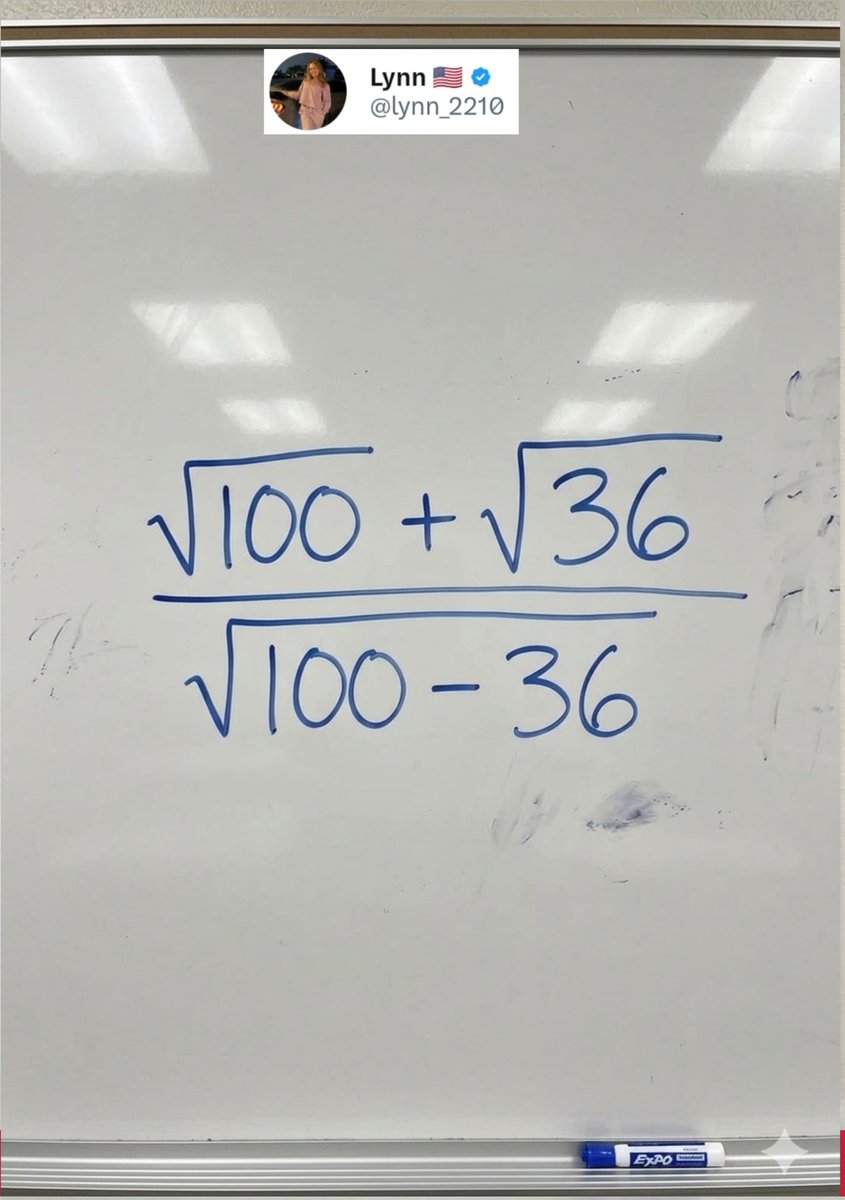 Lynn 🇺🇸
@lynn_2210
√100 + √36
√100 - 36
EXPO